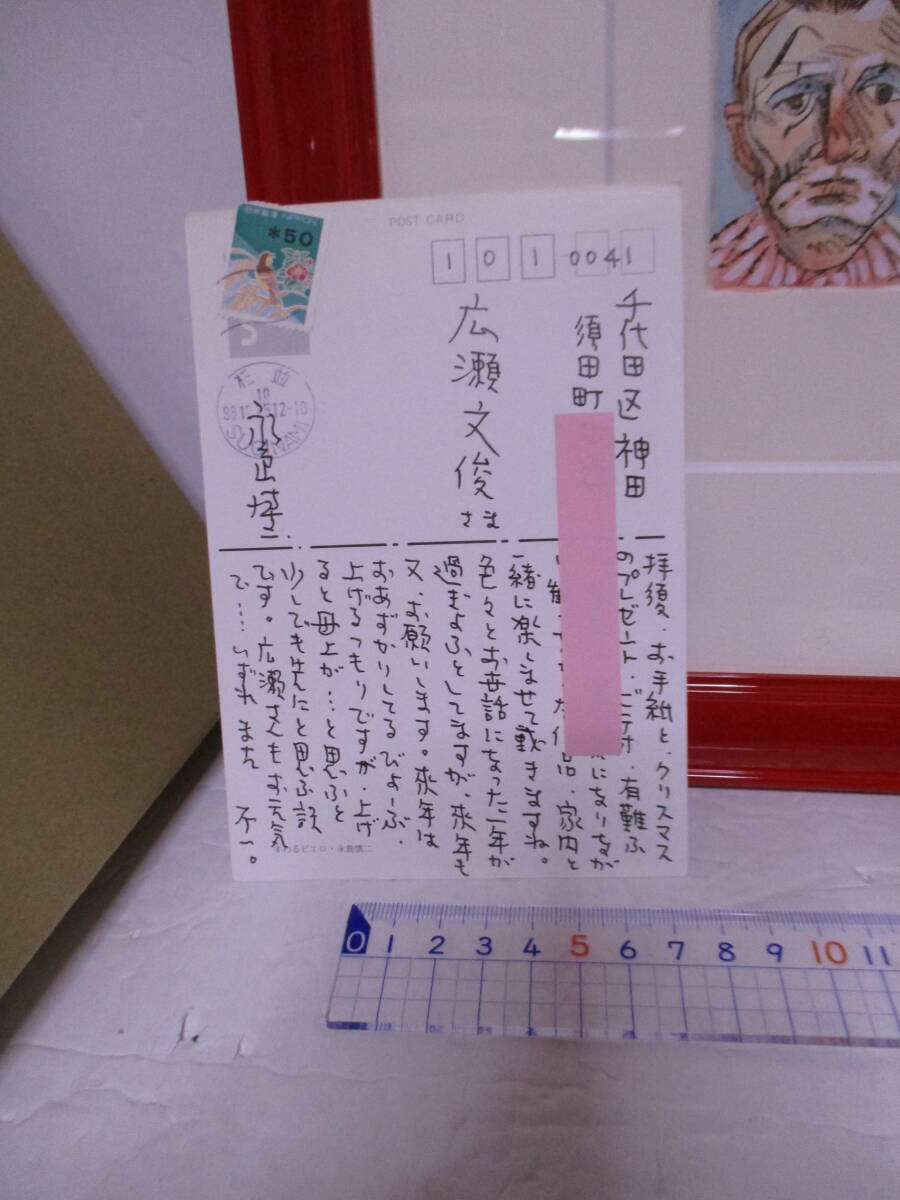 POST CARD
*50
1010041
千代田区神田
須田町
広瀬文俊さま
杉並
SUGINAMI
永島慎二
拝復、お手紙と、クリスマス
のプレゼント・有難ふ
になりなが
作品、家内と
一緒に楽しませて戴きますね。
色々とお世話になった一年が
過ぎよふとしてますが、来年も
又、お願いします。来年は
おあずかりしてるびょーぶ、
上げるつもりですが、上げ
ると母上が…と思ふと
少しでも先にと思ふ訳
です。広瀬さんもお元気
で…いずれまた 不一。
まわるピエロ・永島慎二
0 1 2 3 4 5 6 7 8 9 10 11